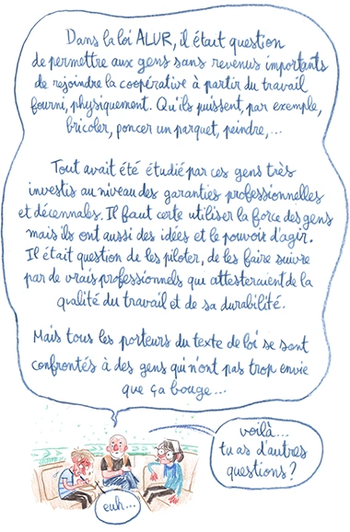 Dans la loi ALUR, il était question
de permettre aux gens sans revenus importants
de rejoindre la coopérative à partir du travail
fourni, physiquement. Qu'ils puissent, par exemple,
bricoler, poncer un parquet, peindre,...
Tout avait été étudié par ces gens très
investis au niveau des garanties professionnelles
et décennales. Il faut certe utiliser la force des gens
mais ils ont aussi des idées et le pouvoir d'agir.
Il était question de les piloter, de les faire suivre
par de vrais professionnels qui attesteraient de la
qualité du travail et de sa durabilité.
Mais tous les porteurs du texte de loi se sont
confrontés à des gens qui n'ont pas trop envie
que ça bouge...
voilà...
tu as d'autres
questions?
euh...